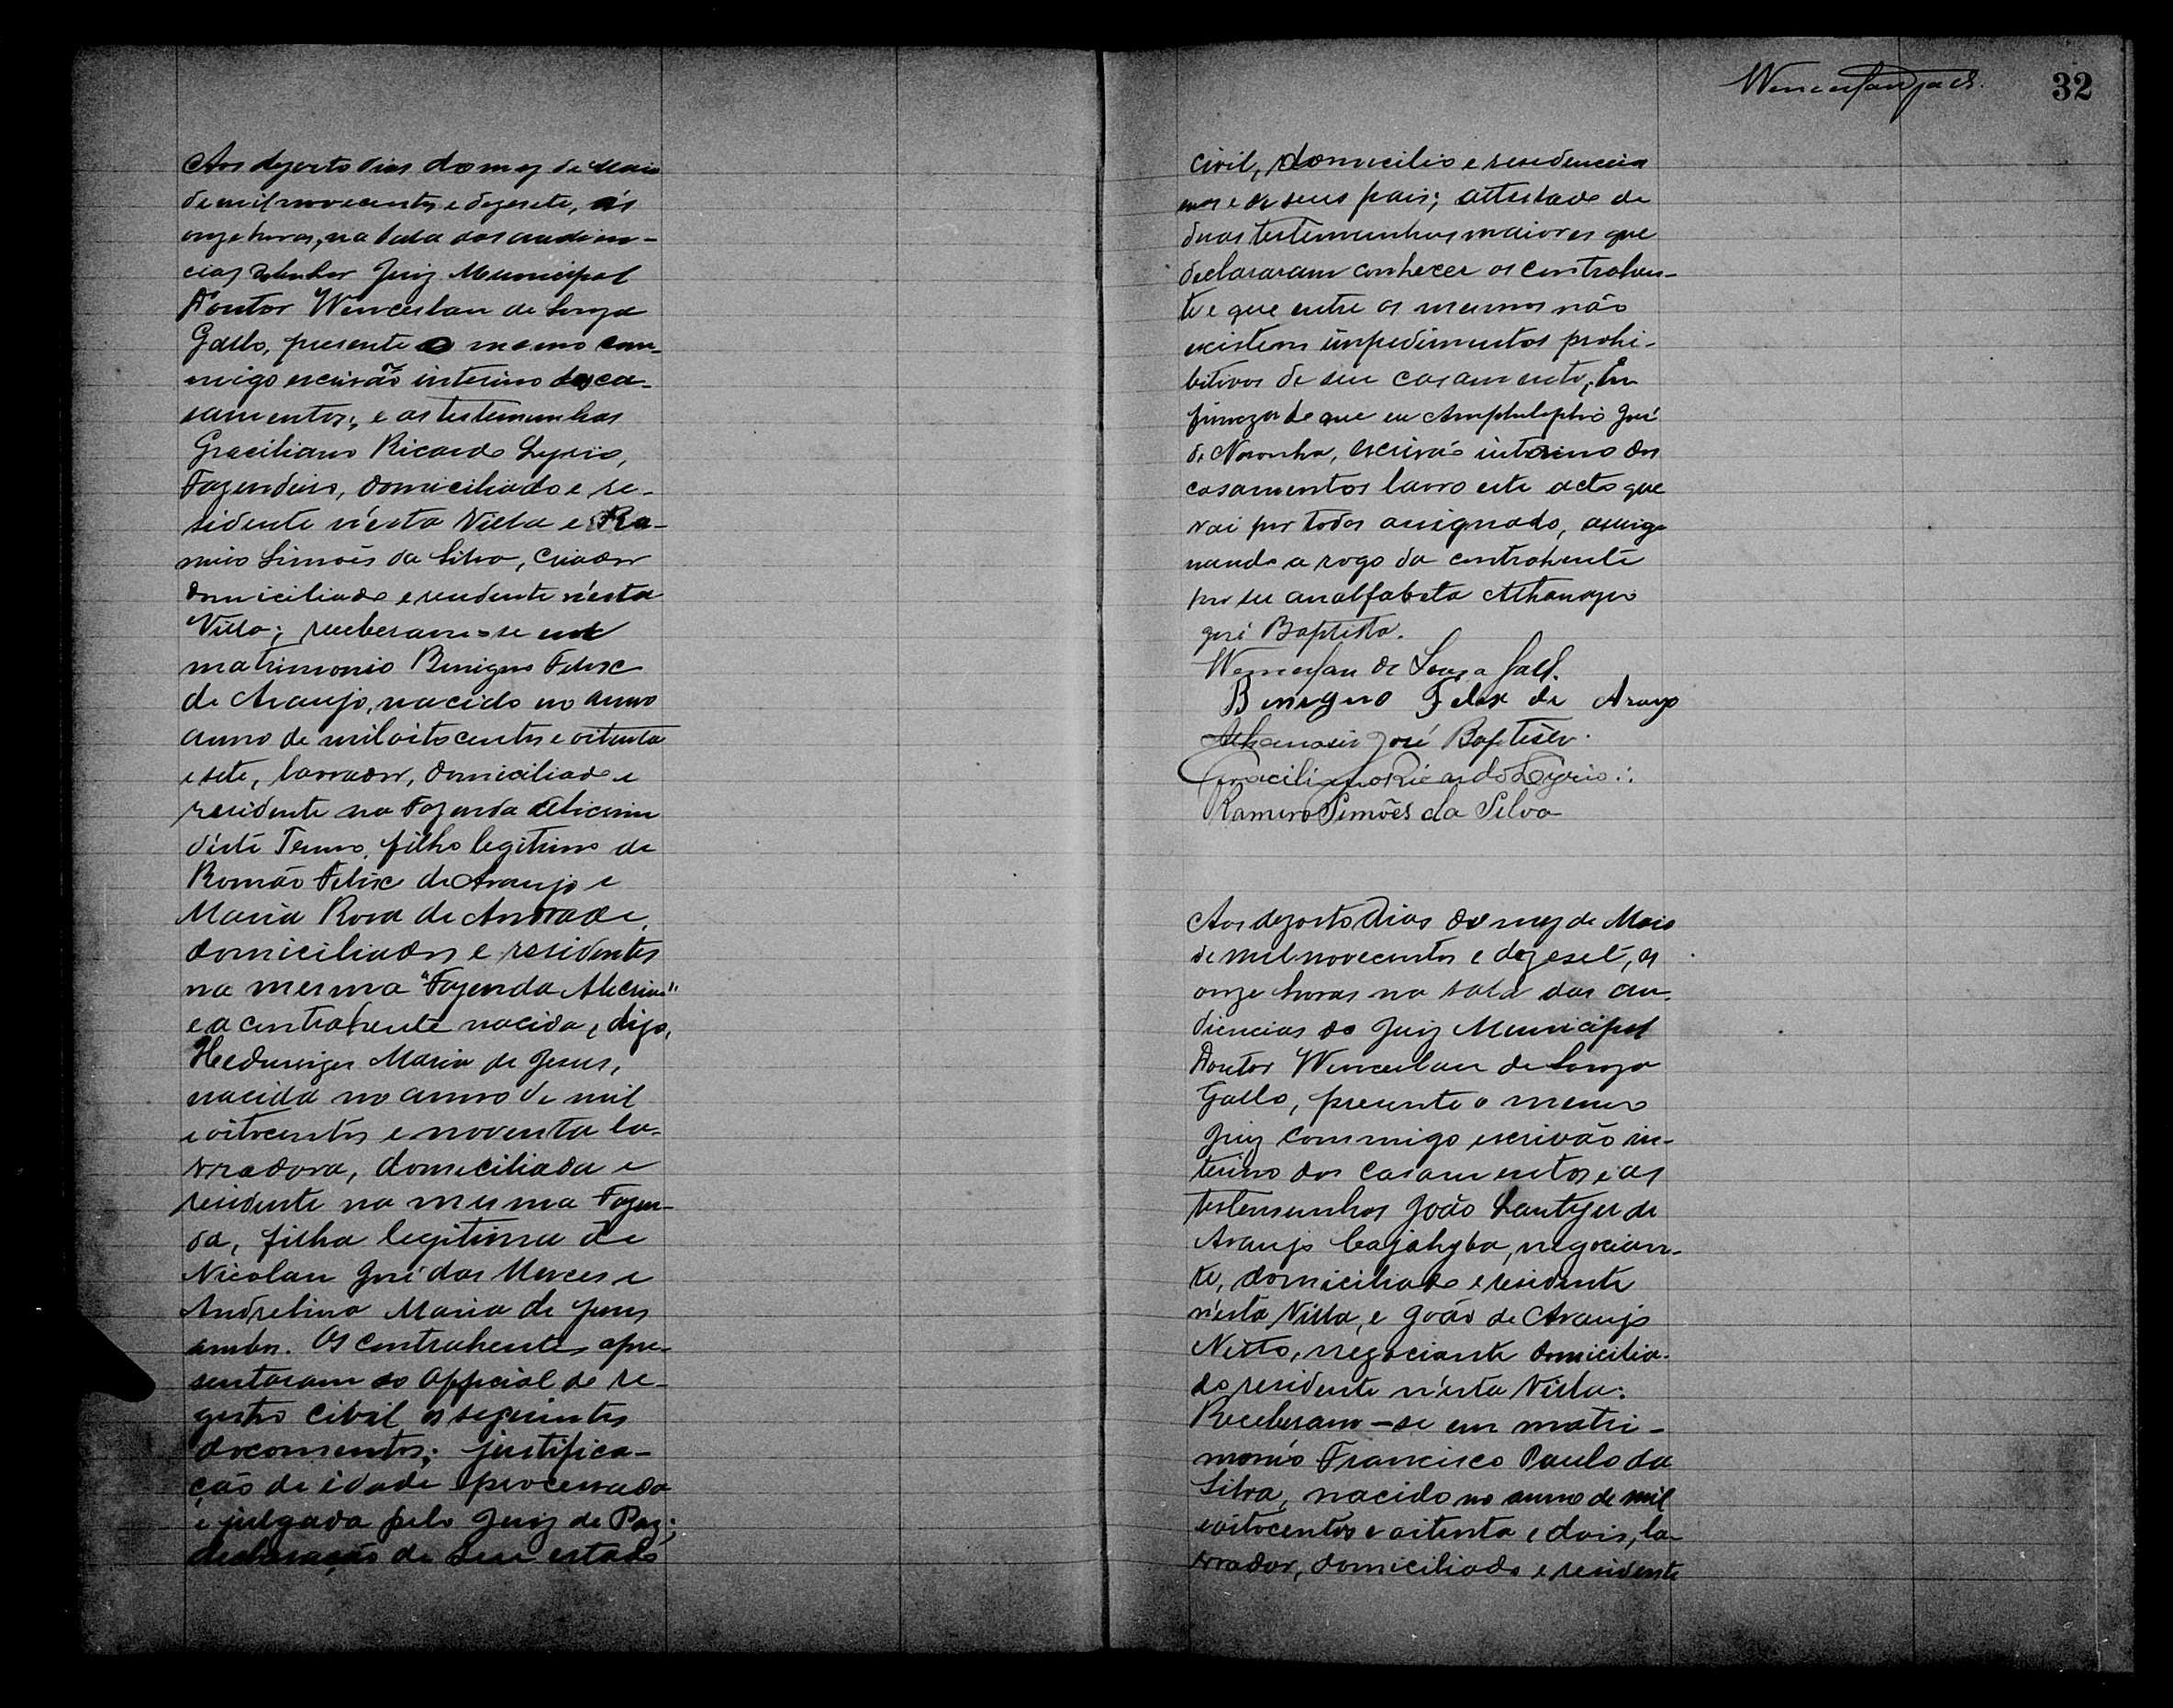 Aos dezoito dias do mez de Maio
de mil novecentos e dezesete, ás
onze horas, na sala das audien-
cias do senhor Juiz Municipal
Doutor Wenceslau de Souza
Gallo, presente o mesmo com-
migo escrivão interino dos ca-
samentos; e as testemunhas
Graciliano Ricardo Lyrio,
Fazendeiro, domiciliado e re-
sidente n'esta Villa e Ra-
miro Simões da Silva, criador
domiciliado e residente n'esta
Villa; receberam-se em
matrimonio Benigno Felix
de Araujo, nacido no anno
anno de mil oitocentos e oitenta
e sete, lavrador, domiciliado e
residente na Fazenda Alecrim
d'este Termo, filho legitimo de
Romão Felix de Araujo e
Maria Rosa de Andrade,
domiciliados e residentes
na mesma "Fazenda Alecrim"
e a contrahente nacida, digo,
Hedwiges Maria de Jesus,
nacida no anno de mil
e oitocentos e noventa la-
vradora, domiciliada e
residente na mesma Fazen-
da, filha legitima de
Nicolau José das Merces e
Andrelina Maria de Jesus
ambos. Os contrahentes apre-
sentaram ao Official do re-
gistro civil os seguintes
documentos; justifica-
ção de idade processada
e julgada pelo Juiz de Paz;
declaração de seu estado
Wenceslau Gallo.
32
civil, domicilio e residencia
e de seus pais; attestado de
duas testemunhas maiores que
declararam conhecer os contrahen-
te e que entre os mesmos não
existem impedimentos prohi-
bitivos de seu casamento; Em
firmeza de que eu Amphilophio José
de Noronha, escrivão interino dos
casamentos lavro este acto que
vai por todos assignado, assig-
nando a rogo da contrahente
por ser analfabeta Athanazio
José Baptista.
Wenceslau de Souza Gallo.
Benigno Felix de Araujo
Athanasio José Baptista.
Graciliano Ricardo Lyrio
Ramiro Simões da Silva
Aos dezoito dias do mez de Maio
de mil novecentos e dezesete, as
onze horas na sala das au-
diencias do Juiz Municipal
Doutor Wenceslau de Souza
Gallo, presente o mesmo
Juiz commigo escrivão in-
terino dos casamentos e as
testemunhas João de
Araujo Cajahyba, negocian-
te, domiciliado e residente
n'esta Villa, e João de Araujo
Netto, negociante domicilia-
do residente n'esta Villa:
Receberam-se em matri-
monio Francisco Paulo da
Silva, nacido no anno de mil
e oitocentos e oitenta e dois, la-
vrador, domiciliado e residente